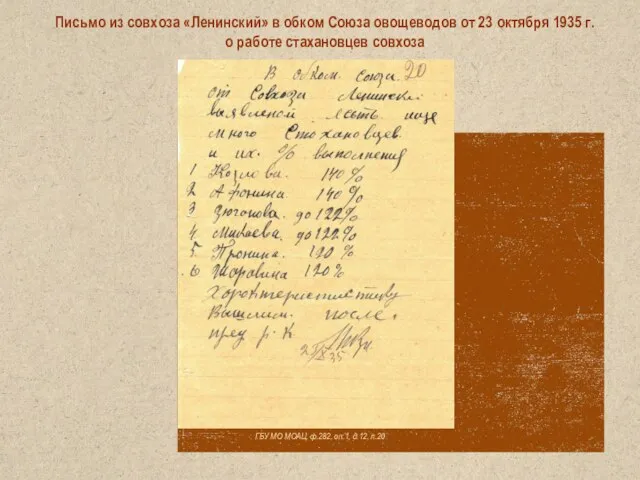 Письмо из совхоза «Ленинский» в обком Союза овощеводов от 23 октября 1935 г.
о работе стахановцев совхоза
В обком. союза. 20
от Совхоза Ленински
выявленой ясыть еще
много Стохановцев.
и их. % выполнения
1 Козлова. 140%
2 Афонина. 140%
3 Зюганова. до 122%
4. Микаева. до 122%
5. Пронина. 120 %
6 120%
хороктеристику
Вышлим. после.
пред р. К
35
ГБУ МО МОАЦ, ф.282, оп.1, д.12, л.20